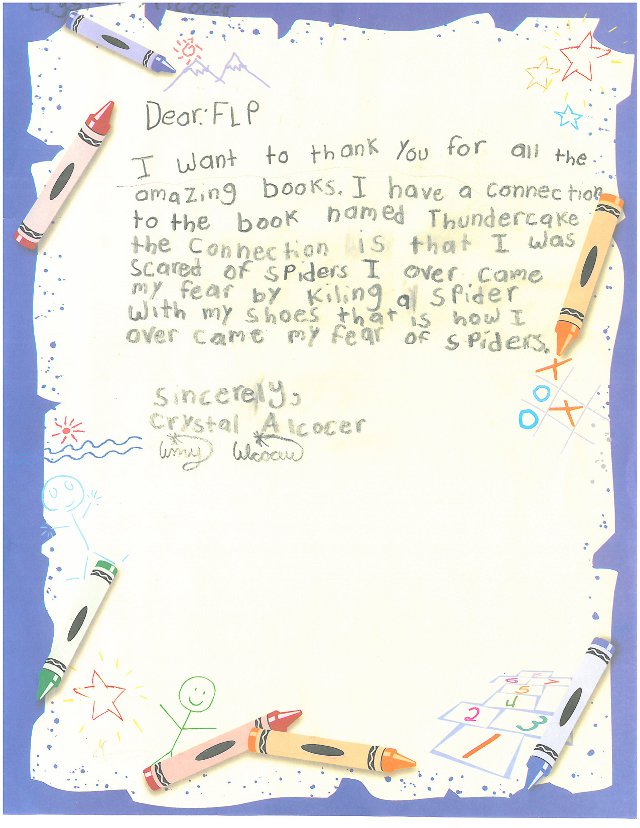 Dear: FLP
I want to thank you for all the
amazing books. I have a connection
to the book named Thundercake
the connection is that I was
scared of spiders I over came
my fear by kiling a spider
with my shoes that is how I
over came my fear of spiders.
Sincerely,
Crystal Alcocer
X
O X
O
6 7
5
4
2 3
1